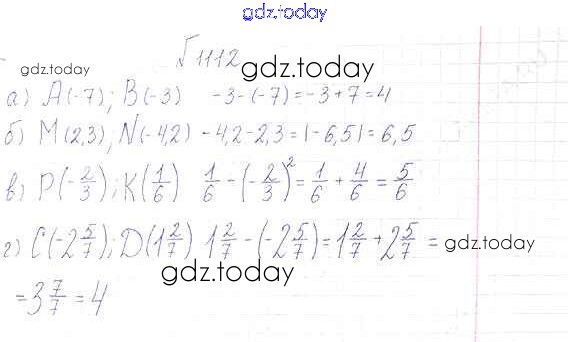 gdz.today
√1112
gdz.today
gdz.today
а) A(-7); B(-3) -3-(-7)=-3+7=4
б) M(2,3); N(-4,2) -4,2-2,3=|-6,5|=6,5
в) P(-2/3); K(1/6) 1/6-(-2/3)²=1/6+4/6=5/6
г) C(-2 5/7); D(1 2/7) 1 2/7-(-2 5/7)=1 2/7+2 5/7= gdz.today
gdz.today
=3 7/7=4
gdz.today